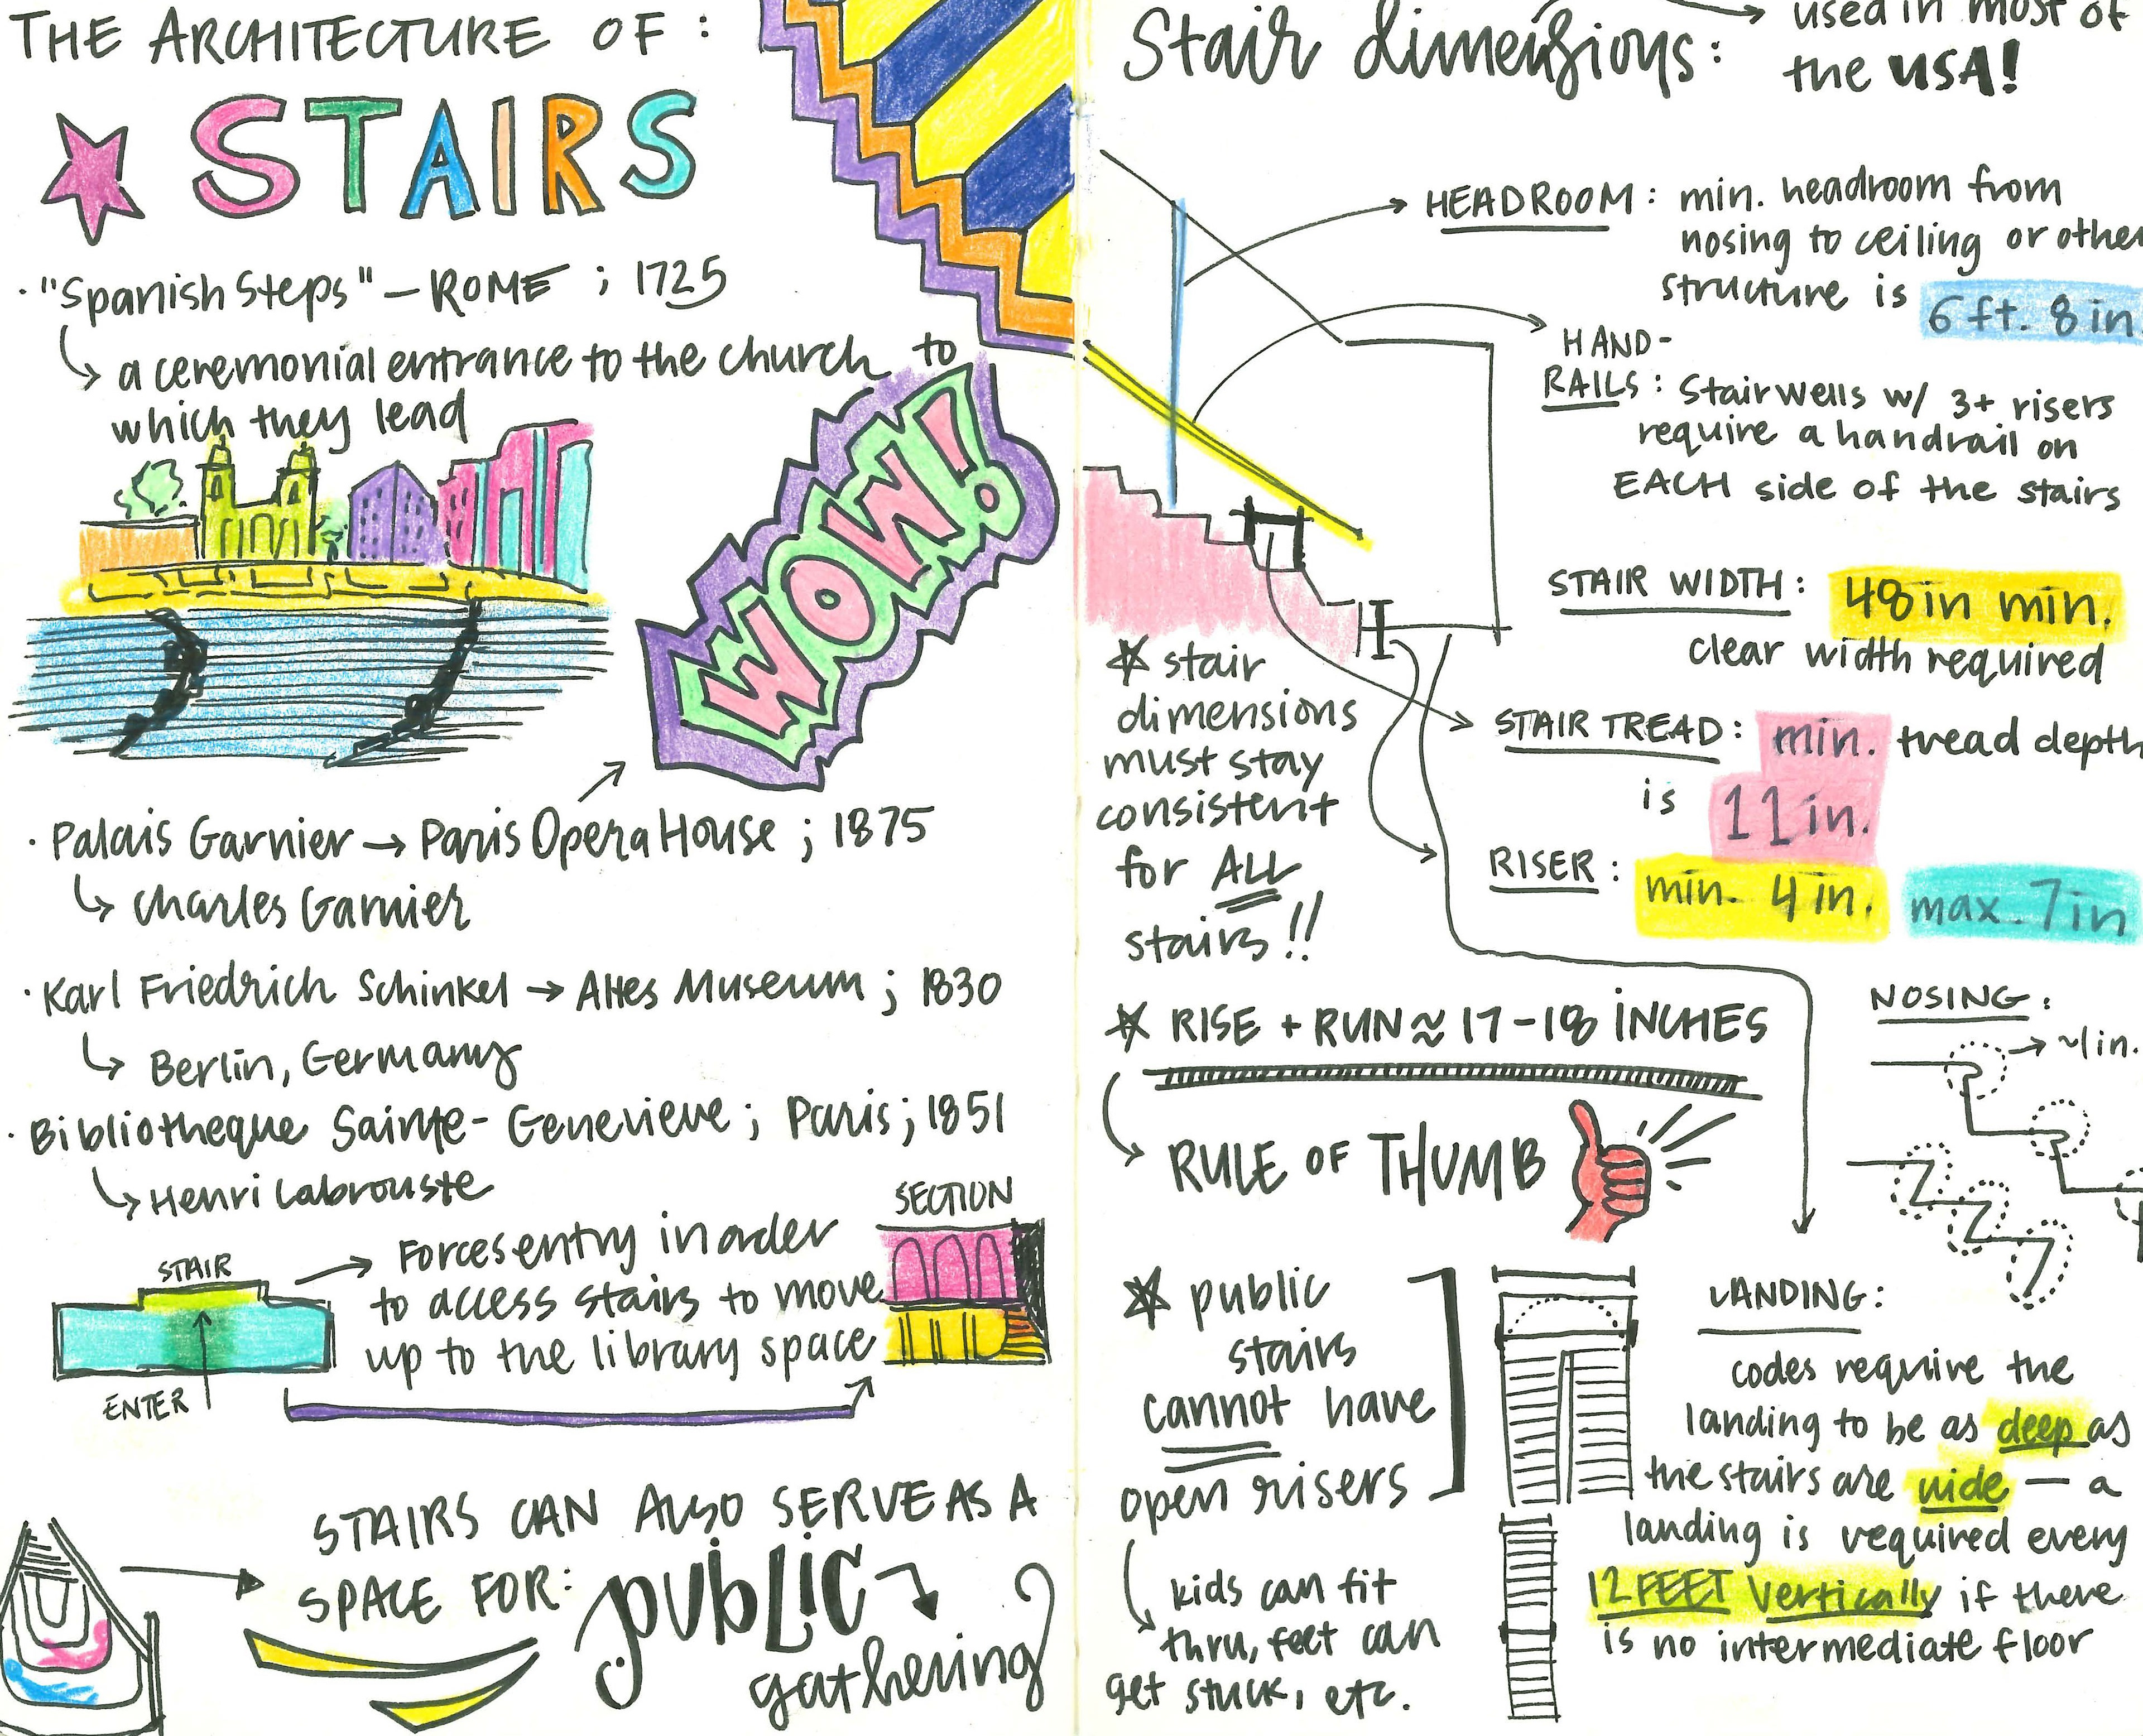 THE ARCHITECTURE OF :
STAIRS
· "Spanish Steps" – ROME ; 1725
a ceremonial entrance to the church to
which they lead
WOW!
· Palais Garnier → Paris Opera House ; 1875
Charles Garnier
· Karl Friedrich Schinkel → Altes Museum ; 1830
Berlin, Germany
· Bibliotheque Sainte-Genevieve ; Paris ; 1851
Henri Labrouste
SECTION
STAIR
ENTER
Forces entry in order
to access stairs to move
up to the library space
STAIRS CAN ALSO SERVE AS A
SPACE FOR: public
gathering
Stair dimensions:
used in most of
the USA!
HEADROOM : min. headroom from
nosing to ceiling or other
structure is 6 ft. 8 in.
HAND-
RAILS : Stairwells w/ 3+ risers
require a handrail on
EACH side of the stairs
STAIR WIDTH : 48 in min.
clear width required
STAIR TREAD : min. tread depth
is 11 in.
RISER : min. 4 in. max. 7 in
* stair
dimensions
must stay
consistent
for ALL
stairs !!
* RISE + RUN ≈ 17-18 INCHES
RULE OF THUMB
NOSING :
→ ~1 in.
* public
stairs
cannot have
open risers
kids can fit
thru, feet can
get stuck, etc.
LANDING :
codes require the
landing to be as deep as
the stairs are wide — a
landing is required every
12 FEET vertically if there
is no intermediate floor